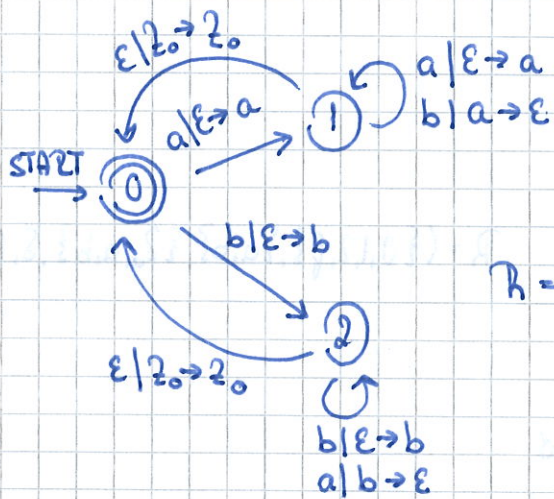 ε|Z₀→Z₀
a|ε→a
b|a→ε
a|ε→a
1
START
0
b|ε→b
2
ε|Z₀→Z₀
b|ε→b
a|b→ε